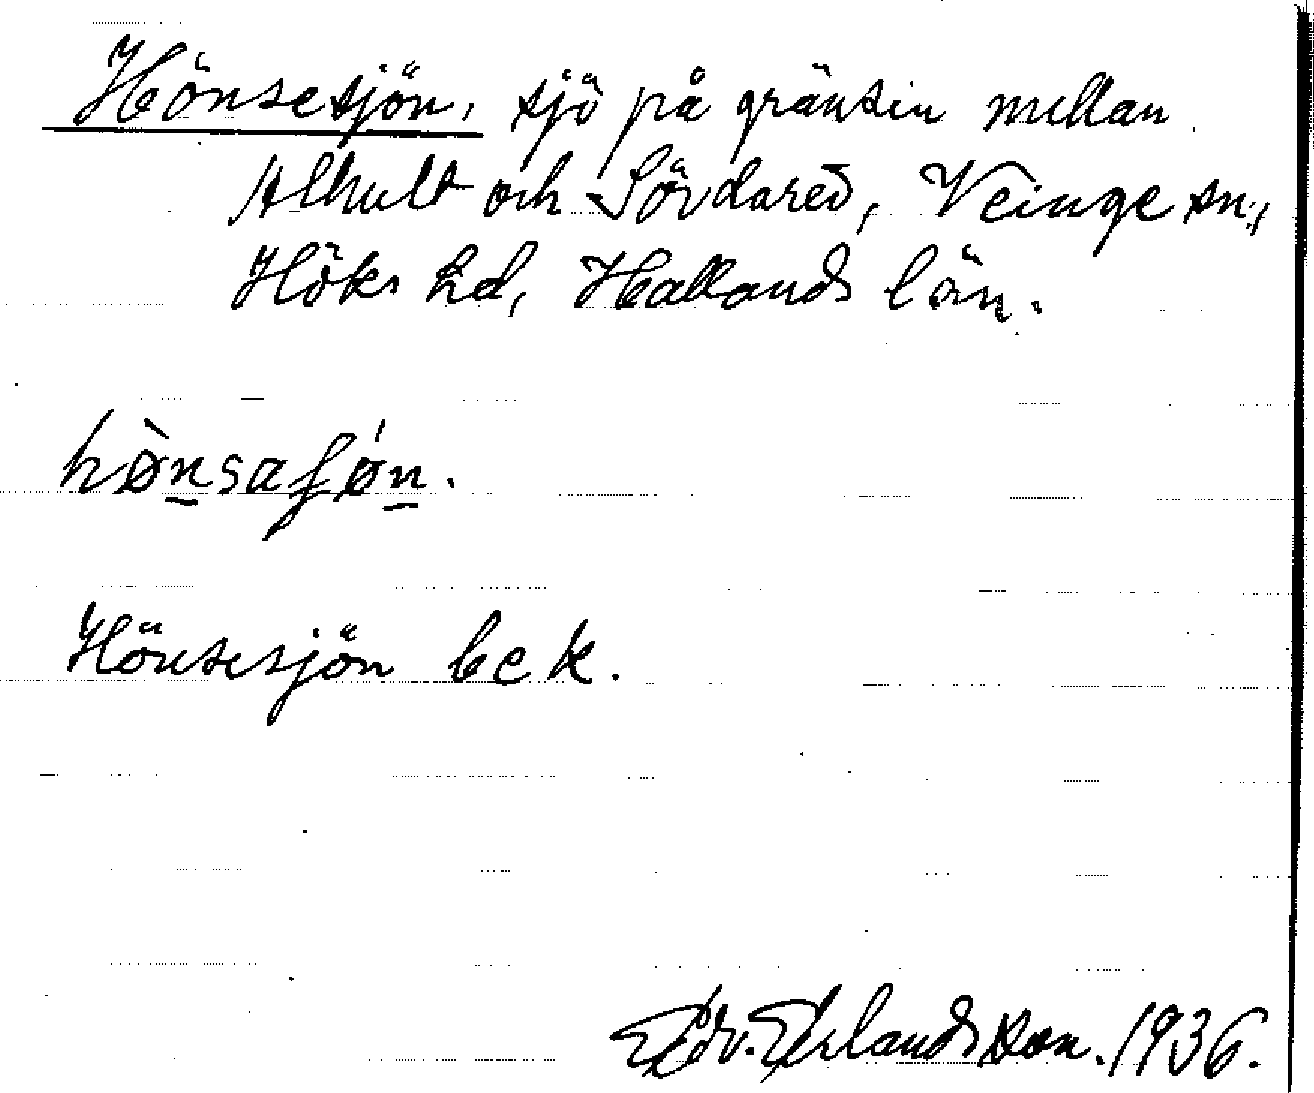 Hönsesjön, sjö på gränsen mellan
Alhult och Sördared, Veinge sn.,
Höks hd, Hallands län.
hø̀nsaʃǿn.
Hönsesjön bek.
Edv. Erlandsson. 1936.